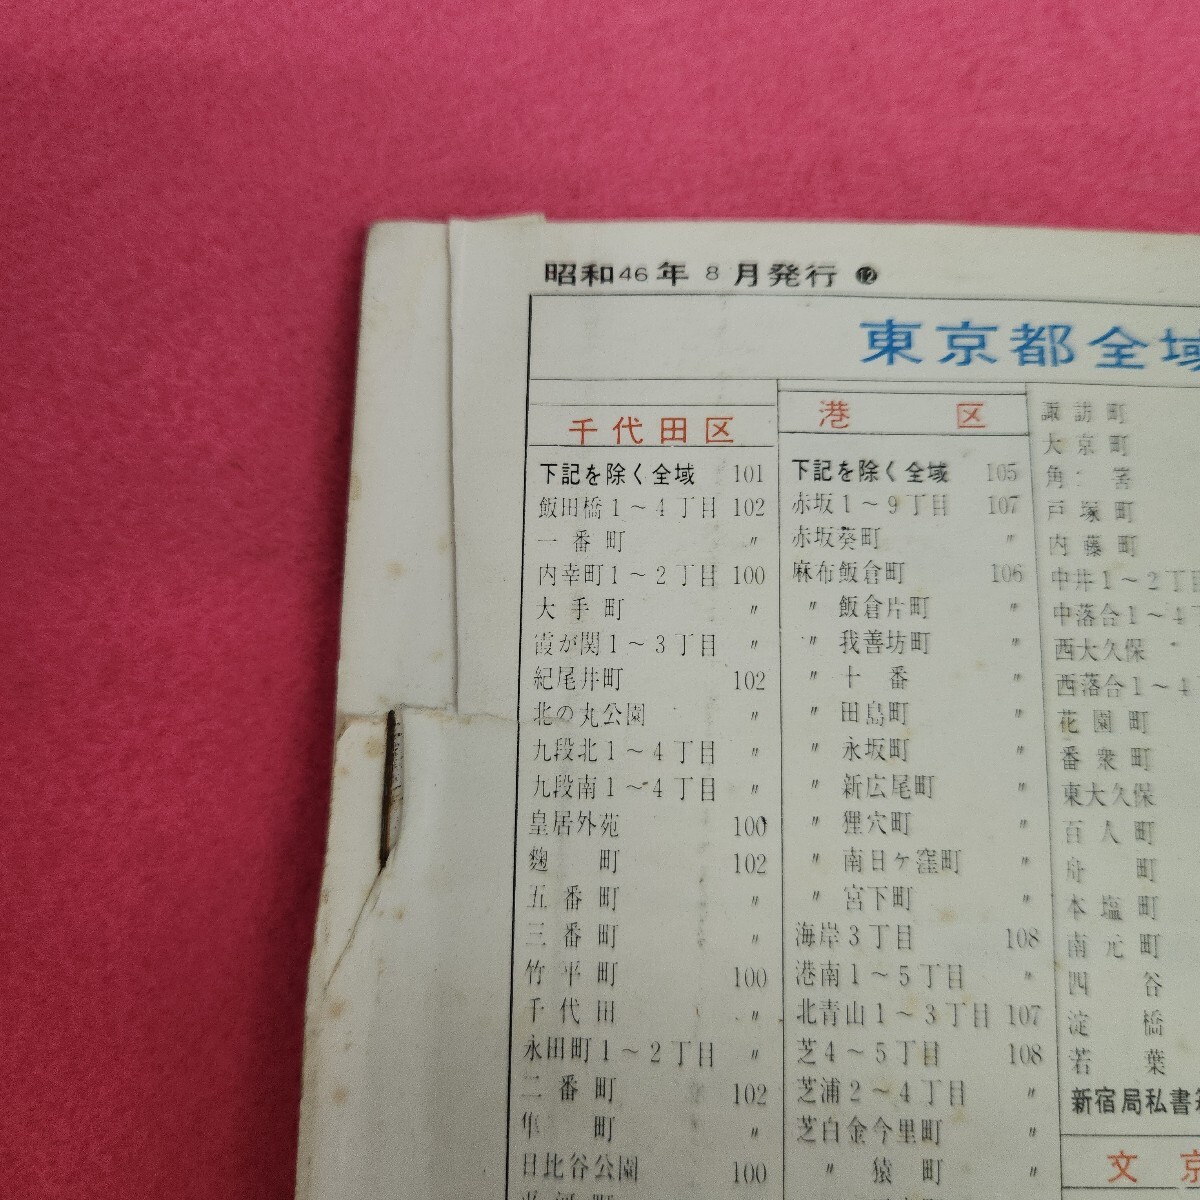 昭和46年 8月発行 ⓬
東京都全域
千代田区
下記を除く全域 101
飯田橋1～4丁目 102
一番町 〃
内幸町1～2丁目 100
大手町 〃
霞が関1～3丁目 〃
紀尾井町 102
北の丸公園 〃
九段北1～4丁目 〃
九段南1～4丁目 〃
皇居外苑 100
麴町 102
五番町 〃
三番町 〃
竹平町 100
千代田 〃
永田町1～2丁目 〃
二番町 102
隼町 〃
日比谷公園 100
港区
下記を除く全域 105
赤坂1～9丁目 107
赤坂葵町 〃
麻布飯倉町 106
〃 飯倉片町 〃
〃 我善坊町 〃
〃 十番 〃
〃 田島町 〃
〃 永坂町 〃
〃 新広尾町 〃
〃 狸穴町 〃
〃 南日ヶ窪町 〃
〃 宮下町 〃
海岸3丁目 108
港南1～5丁目 〃
北青山1～3丁目 107
芝4～5丁目 108
芝浦2～4丁目 〃
芝白金今里町 〃
〃 猿町 〃
諏訪町
大京町
角筈
戸塚町
内藤町
中井1～2丁目
中落合1～4
西大久保
西落合1～4
花園町
番衆町
東大久保
百人町
舟町
本塩町
南元町
四谷
淀橋
若葉
新宿局私書箱
文京